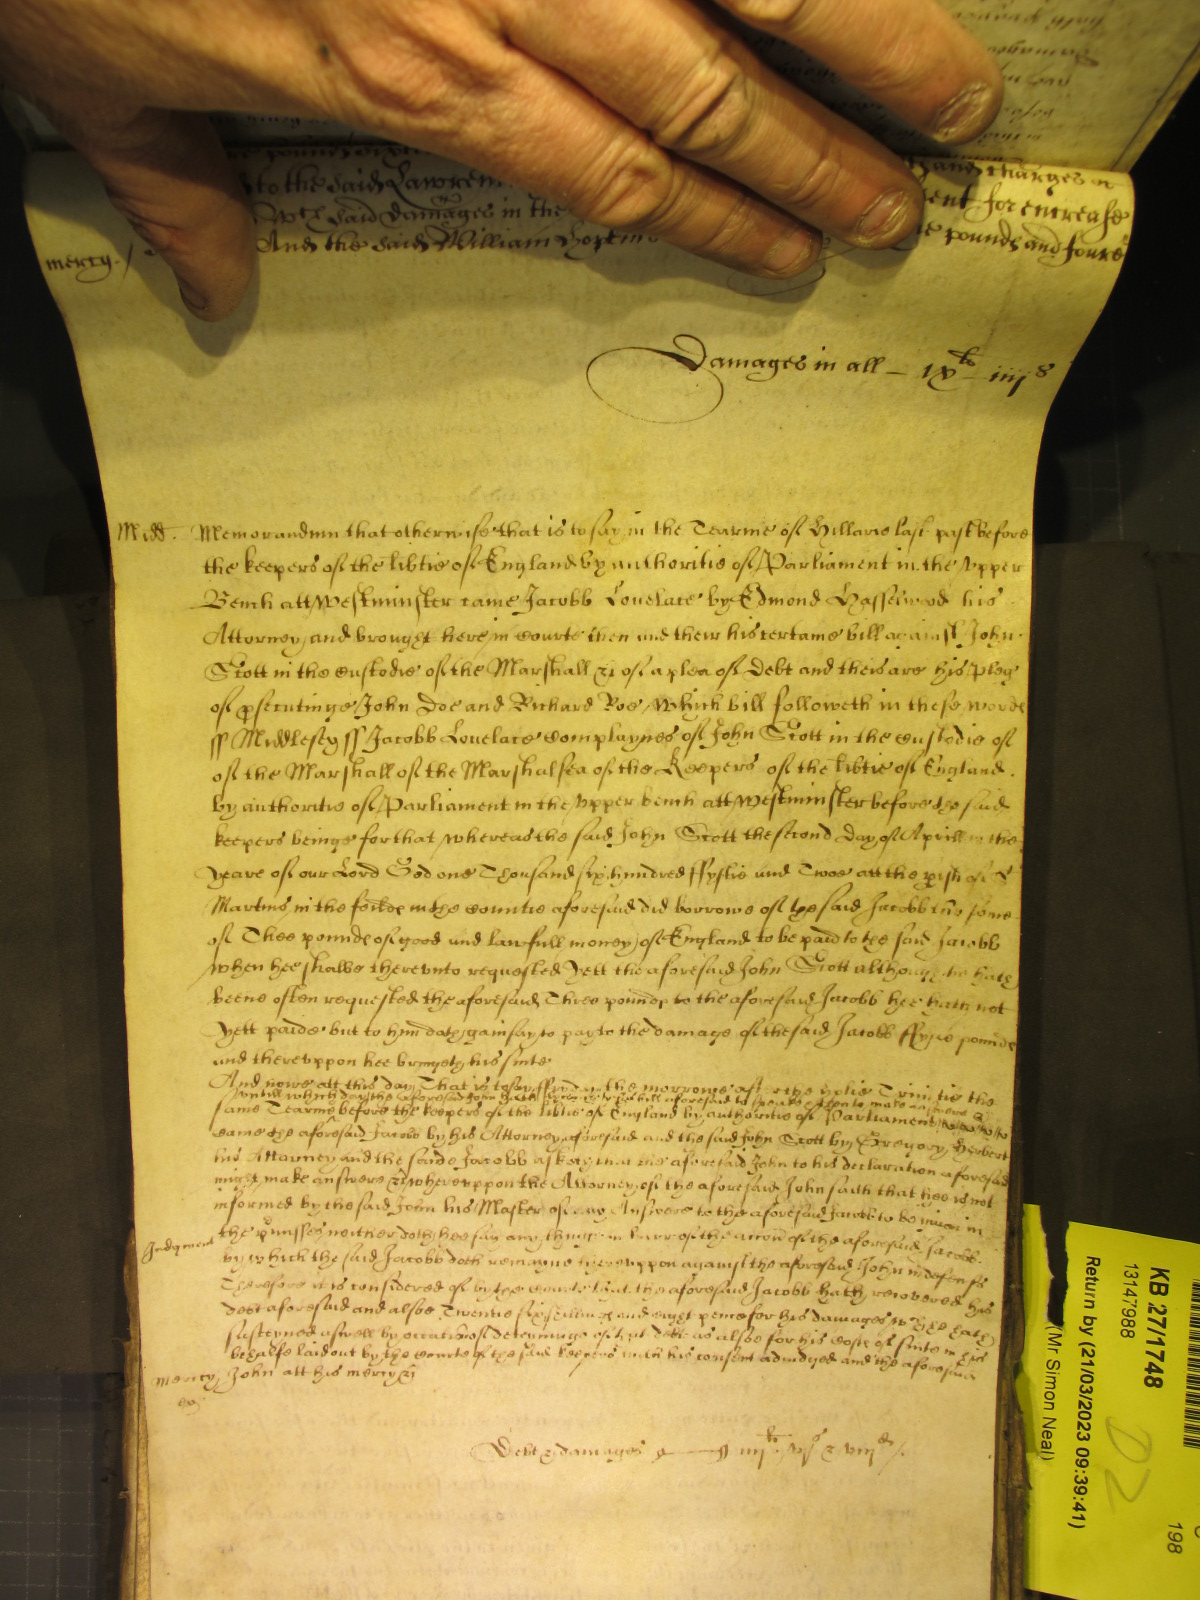 to the said Lawren
and charges
said damages in the
ent for encrease
And the said William
pounds and foure
mercy./
Damages in all – ix li – iiij s
Midd. Memorandum that otherwise that is to say in the Tearme of Hillarie last past before
the keepers of the libtie of England by authoritie of Parliament in the Vpper
Bench att Westminster came Jacobb Lovelace by Edmond Hasselwood his
Attorney and brought here in Courte then and their his certaine bill against John
Scott in the custodie of the Marshall &c of a plea of Debt and theis are his Pleg
of psecutinge John Doe and Richard Roe which bill followeth in these words
ss Middlesex ss Jacobb Lovelace complaynes of John Scott in the custodie of
of the Marshall of the Marshalsea of the Keepers of the libtie of England
by authoritie of Parliament in the vpper bench att Westminster before the said
keepers beinge for that whereas the said John Scott the second day of Aprill in the
yeare of our Lord God one Thousand six hundred ffyftie and Twoe att the pish of St
Martins in the in the Countie aforesaid did borrowe of the said Jacobb the some
of Three pounds of good and lawfull money of England to be paid to the said Jacobb
when hee shalbe therevnto requested Yett the aforesaid John Scott although he hath
beene often requested the aforesaid Three pounds to the aforesaid Jacobb hee hath not
yett paide but to him doth gainsay to pay to the damage of the said Jacobb ffyve pounds
and therevppon hee bringeth his suite
And nowe att this day That is to say ffryday the morrowe after the vtis Trinitie the
vntill which day the aforesaid John hath to the bill aforesaid to and then to make answere &c
same Tearme before the keepers of the libtie of England by authoritie of Parliament
came the aforesaid Jacobb by his Attorney aforesaid and the said John Scott by Gregory Herbert
his Attorney and the saide Jacobb asketh that the aforesaid John to his declaration aforesaid
might make answere &c wherevppon the Attorney of the aforesaid John saith that hee is not
informed by the said John his Master of any Answere to the aforesaid Jacobb to be given in
the pmisses neither doth hee say any thinge in barre of the accon of the aforesaid Jacobb
Judgment by which the said Jacobb doth remayne therevppon against the aforesaid John
Therefore it is considered of by the Courte that the aforesaid Jacobb hath recovered his
debt aforesaid and alsoe Twentie six shillings and eight pence for his damages which hee hath
susteyned aswell by occation of deteyninge of that debt as alsoe for his Costs of suite in his
behalfe laid out by the Courte of the said keepers with his consent adiudged and the aforesaid
Mercy John att his mercy &c
Debt & damages iiij li vj s & viij d
KB 27/1748
13147988
Return by (21/03/2023 09:39:41)
(Mr Simon Neal)
D2
198